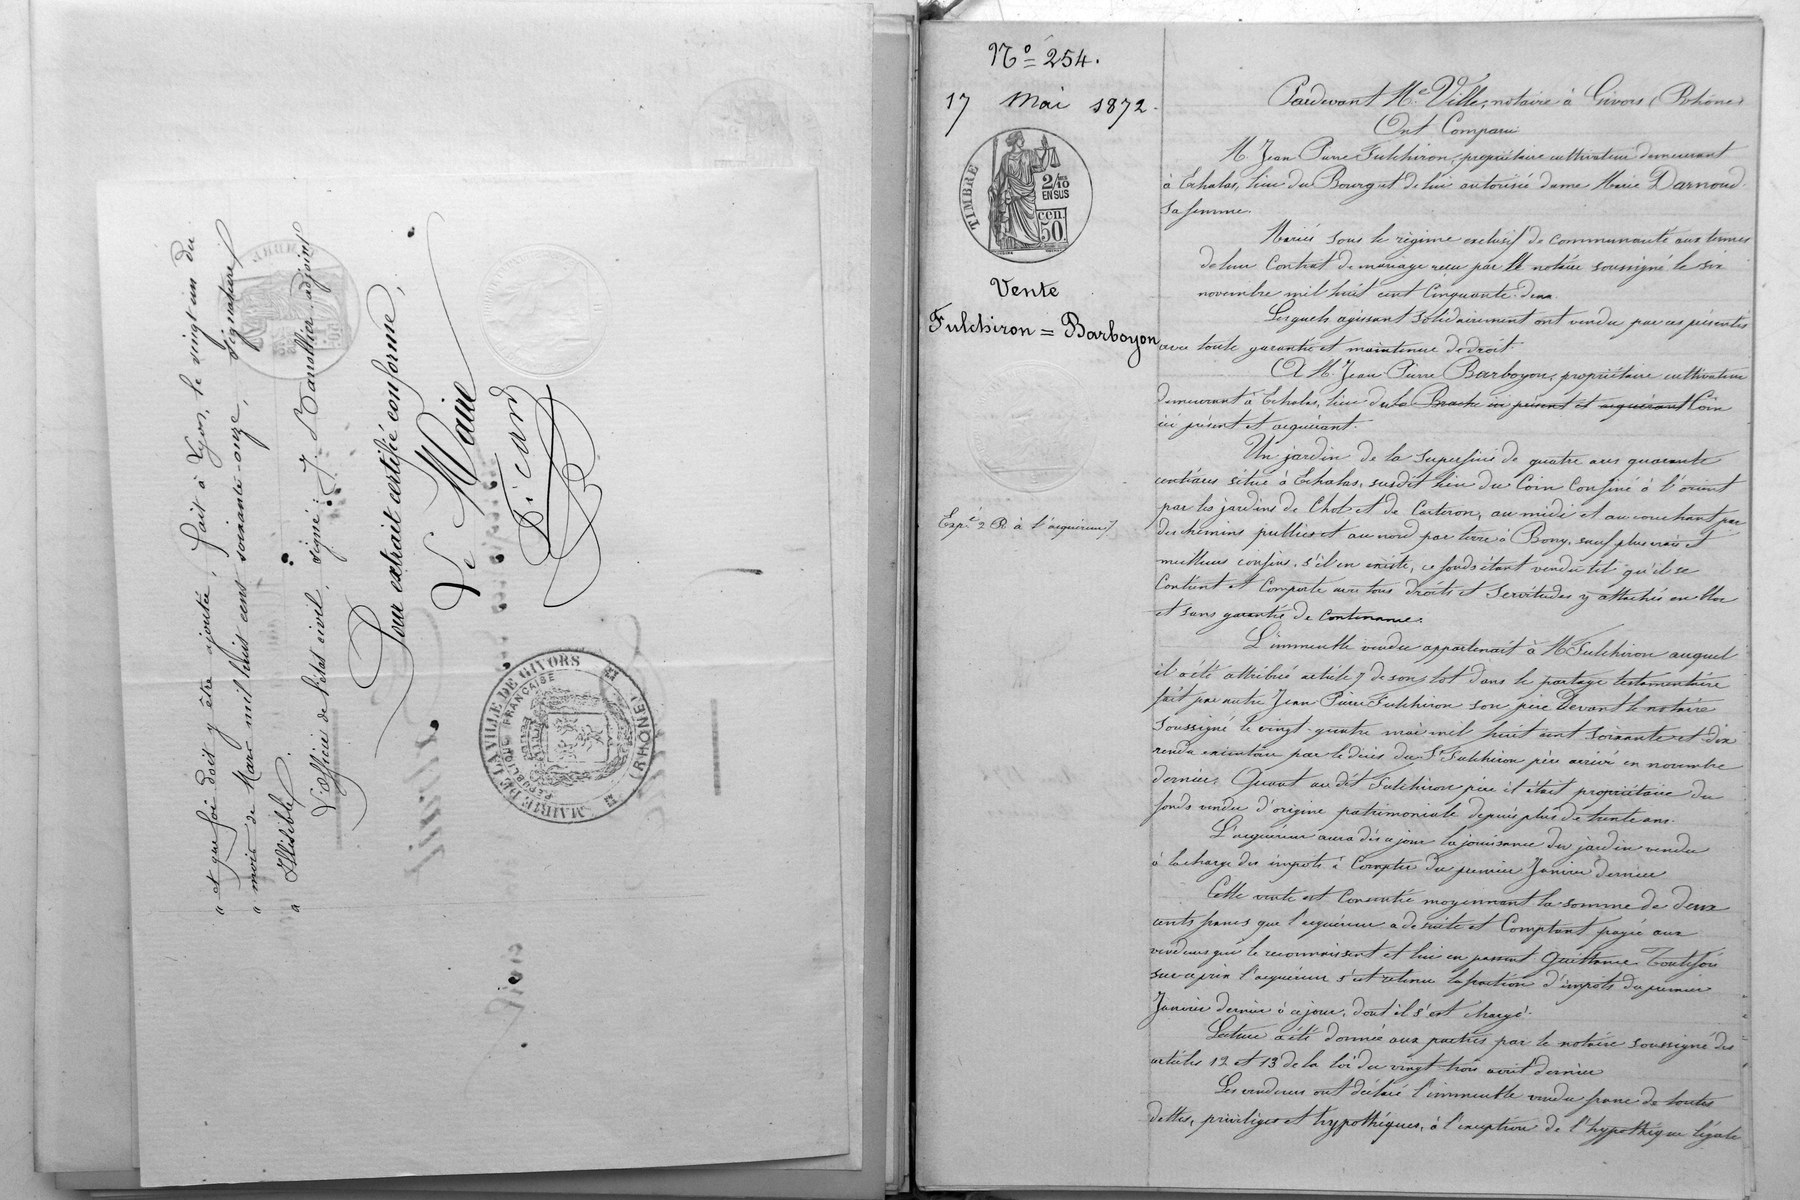 " et que foi doit y être ajoutée, fait à Lyon, le vingt-un du
" mois de Mars mil huit cent soixante-onze, signature
" Illisible.
L'officier de l'état civil, signé: J. d'Canallier adjoint
Pour extrait certifié conforme,
Le Maire
Picard
MAIRIE DE LA VILLE DE GIVORS
(RHÔNE)
RÉPUBLIQUE FRANÇAISE
N° 254.
17 Mai 1872.
TIMBRE
2/10
EN SUS
50 cen
Vente
Fulchiron = Barboyon
Exp.é 2 R à l'acquéreur
Pardevant Me Ville, notaire à Givors (Rhône)
Ont Comparu
M. Jean Pierre Fulchiron, propriétaire cultivateur demeurant
à Echalas, lieu du Bourg et de lui autorisée dame Marie Darnoud
sa femme.
Mariés sous le régime exclusif de communauté aux termes
de leur Contrat de mariage reçu par Me notaire soussigné le six
novembre mil huit cent Cinquante-deux
Lesquels agissant solidairement ont vendu par ces présentes
avec toute garantie et maintenue de droit.
A M. Jean Pierre Barboyon, propriétaire cultivateur
demeurant à Echalas, lieu de la Brache ici présent et acquérant Coin
ici présent et acquérant.
Un jardin de la superficie de quatre ares quarante
centiares situé à Echalas, susdit lieu du Coin Confiné à l'orient
par les jardins de Chol et de Carteron, au midi et au couchant par
des chemins publics et au nord par terre à Bony, sauf plus vrais et
meilleurs confins, s'il en existe, ce fonds étant vendu tel qu'il se
Contient et Comporte avec tous droits et servitudes y attachés en bloc
et sans garantie de Contenance.
L'immeuble vendu appartenait à M Fulchiron auquel
il a été attribué article 7 de son lot dans le partage testamentaire
fait par autre Jean Pierre Fulchiron son père devant le notaire
soussigné le vingt-quatre mai mil huit cent soixante et dix
rendu exécutoire par le décès du Sr Fulchiron père arrivé en novembre
dernier. Quant au dit Fulchiron père il était propriétaire du
fonds vendu d'origine patrimoniale depuis plus de trente ans.
L'acquéreur aura dès ce jour la jouissance du jardin vendu
à la charge des impots à Compter du premier Janvier dernier
Cette vente est Consentie moyennant la somme de deux
cents francs que l'acquéreur a de suite et Comptant payée aux
vendeurs qui le reconnaissent et lui en passent quittance. Toutefois
sur ce prix l'acquéreur s'est retenu la portion d'impots du premier
Janvier dernier à ce jour, dont il s'est chargé.
Lecture a été donnée aux parties par le notaire soussigné des
articles 12 et 13 de la loi du vingt trois août dernier
Les vendeurs ont déclaré l'immeuble vendu franc de toutes
dettes, privilèges et hypothèques, à l'exception de l'hypothèque légale